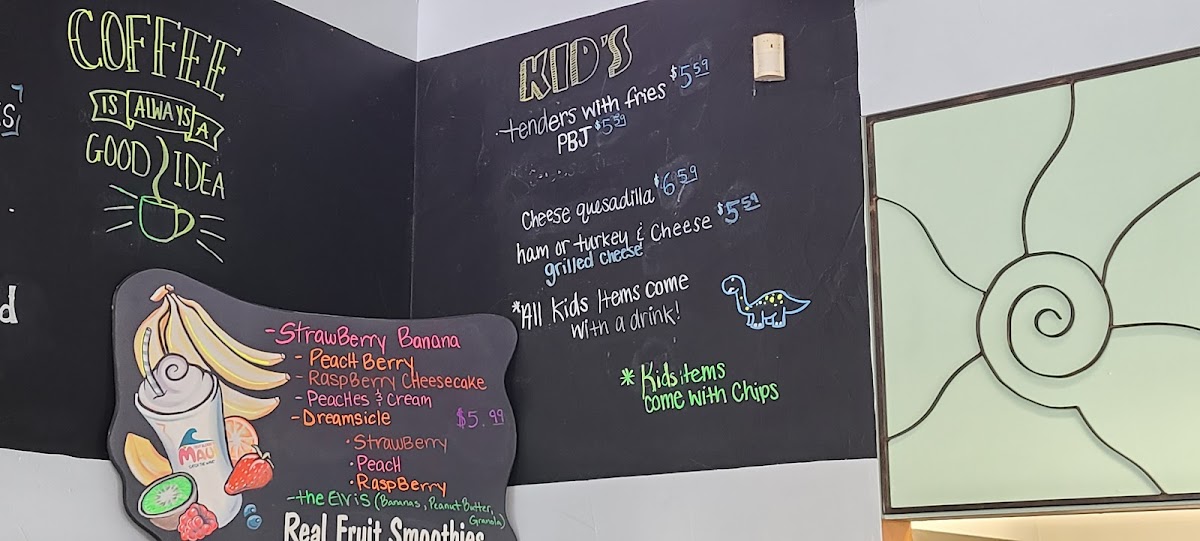 COFFEE
IS ALWAYS A
GOOD IDEA
S
d
KID'S
tenders with fries $5.59
PBJ $5.59
Cheese quesadilla $6.59
ham or turkey & Cheese $5.59
grilled cheese
*All Kids Items come
with a drink!
* Kids items
come with Chips
-StrawBerry Banana
- PeacH Berry
- RaspBerry CHeesecake
- PeacHes & Cream
- Dreamsicle $5.99
• StrawBerry
• PeacH
• RaspBerry
- the Elvis (Bananas, Peanut Butter,
Granola)
Real Fruit Smoothies
MAUI